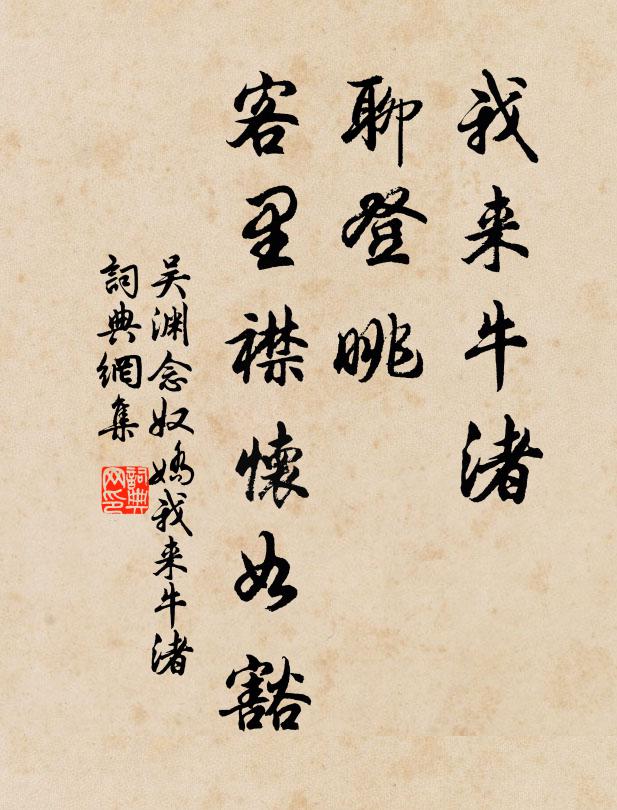 我来牛渚
聊登眺
客里襟懷如豁
吴渊念奴嬌我来牛渚
詞典網集
詞典
网印